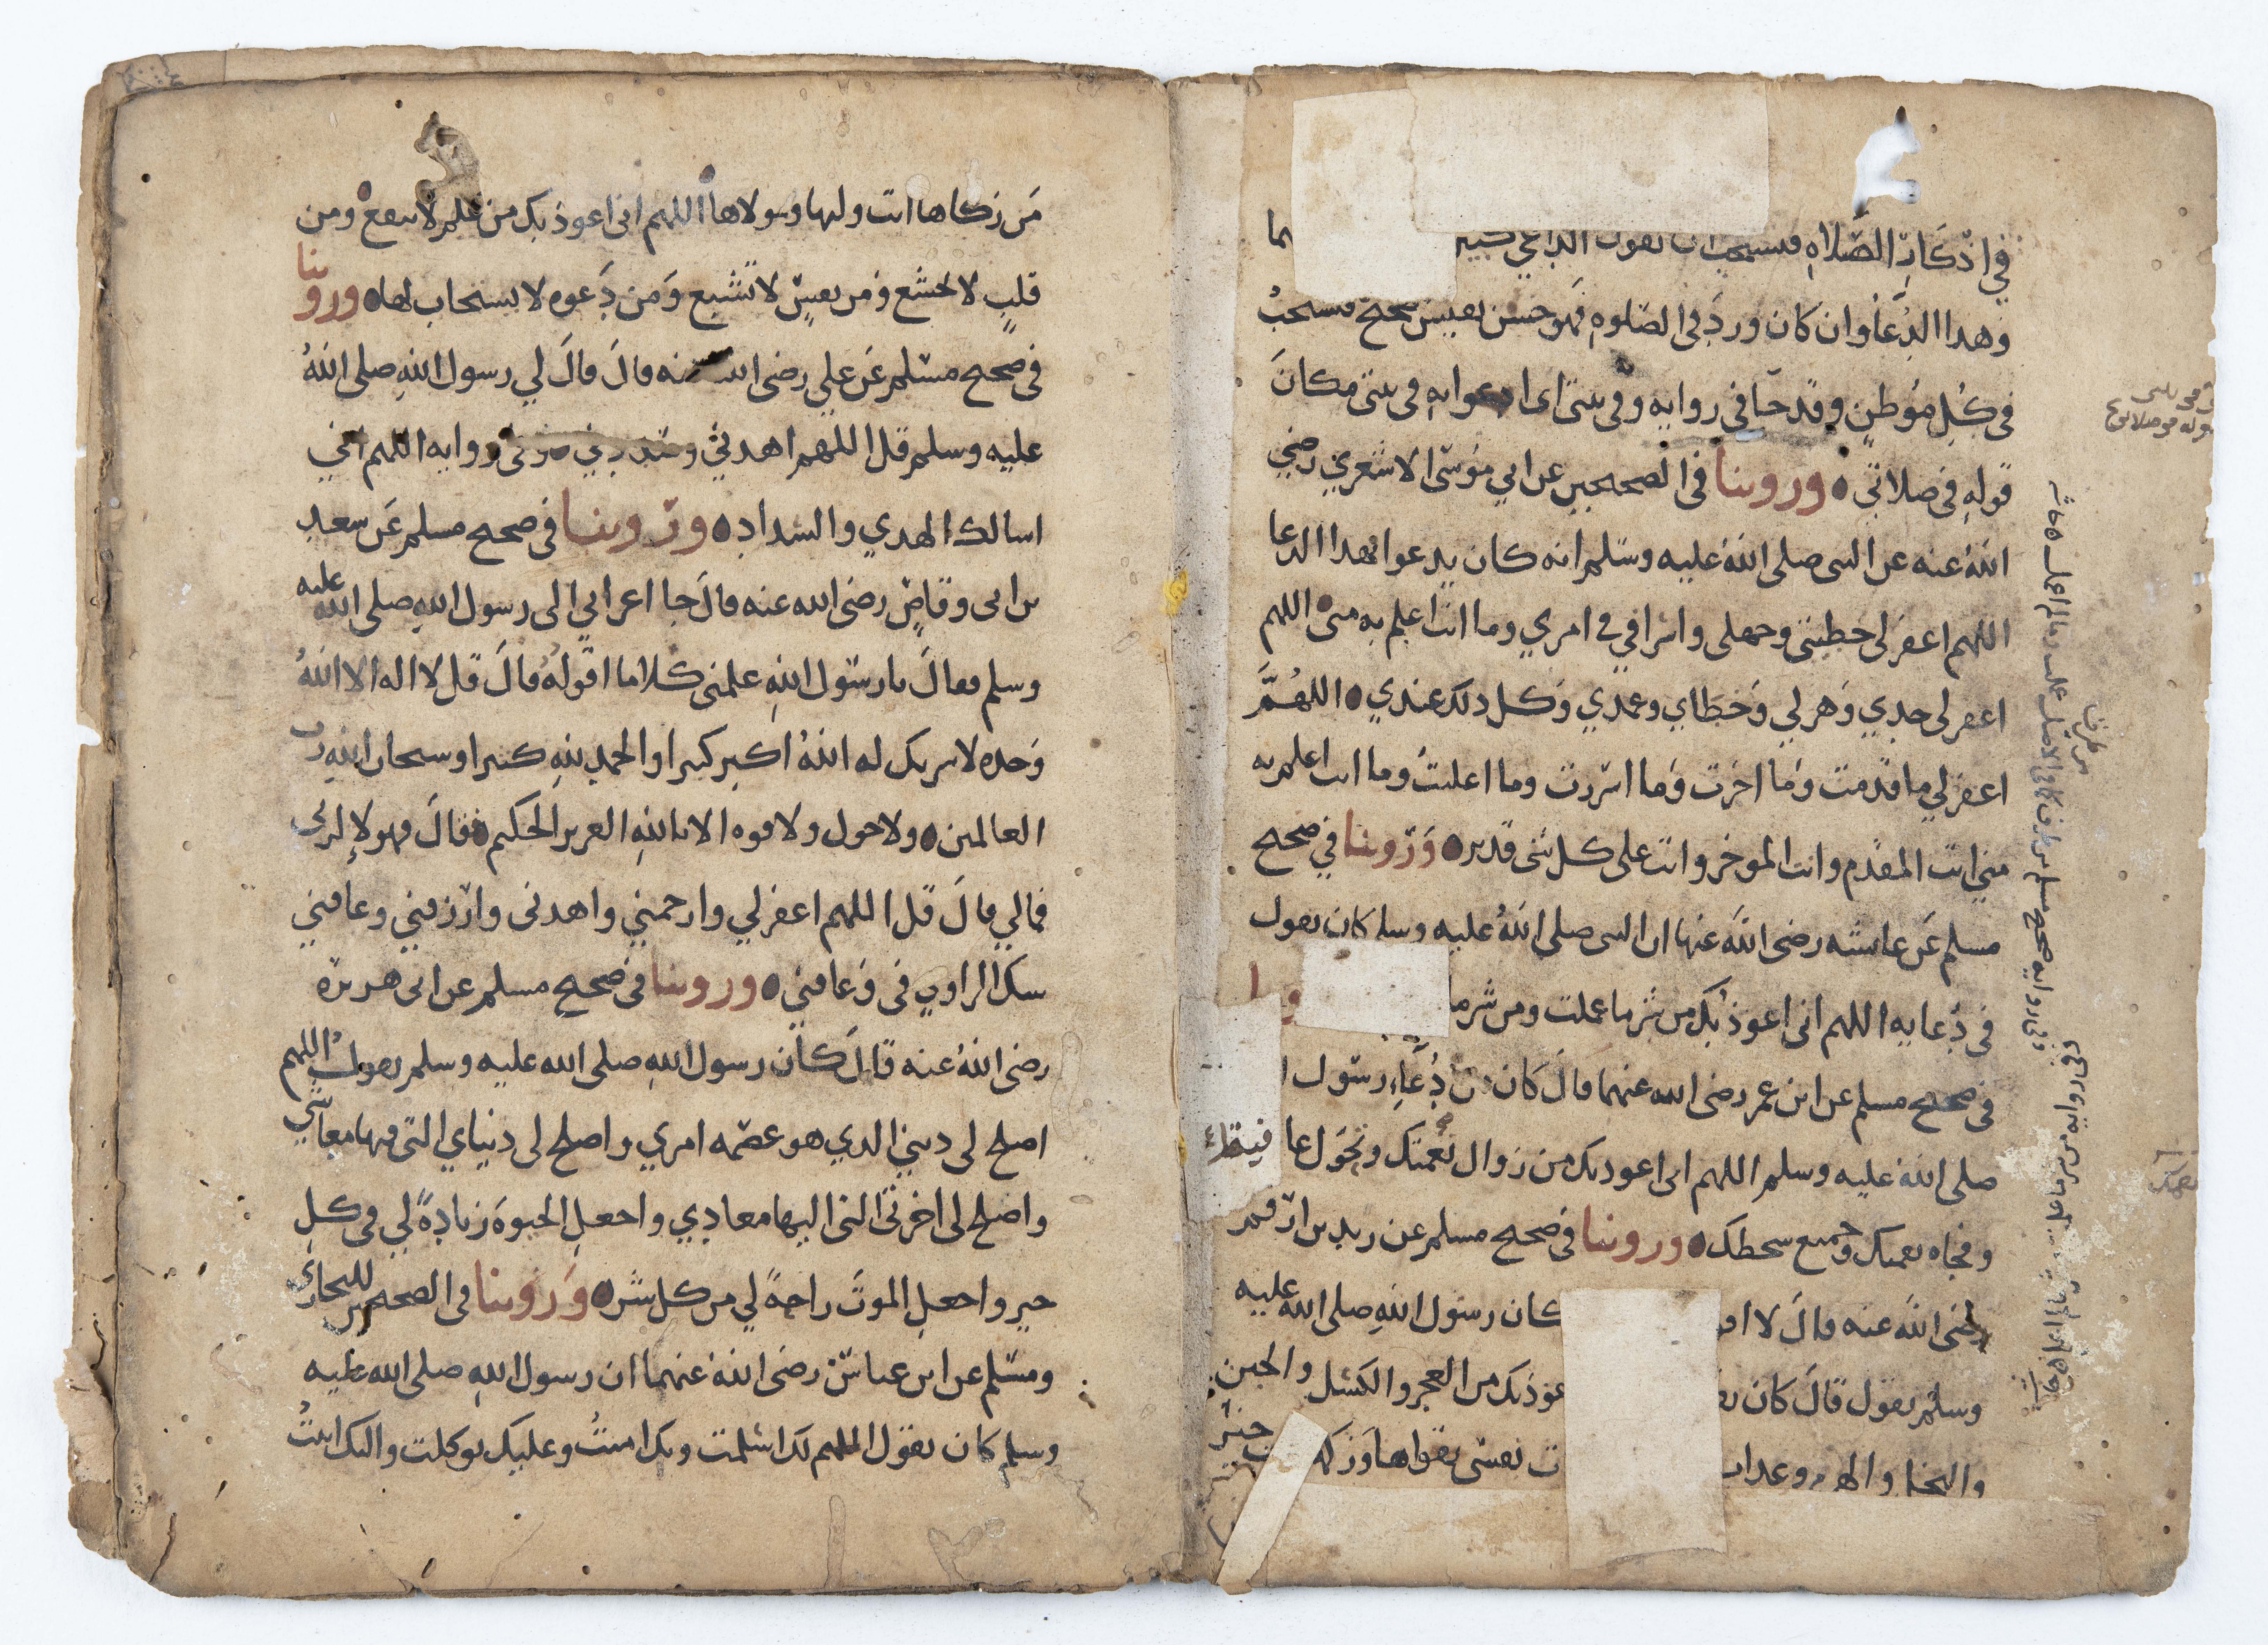 في اذكار الصلاه فيستحب ان يقول الداعي كبير
وهذا الدعا وان كان ورد في الصلوه فهو حسن نفيس صحيح فيستحب
في كل موطن وقد جا في روايه وفي بيتي اي ادعوا به في بيتي مكان
قوله في صلاتي وروينا في الصحيحين عن ابي موسى الاشعري رضي
الله عنه عن النبي صلى الله عليه وسلم انه كان يدعوا بهذا الدعا
اللهم اغفر لي خطيتي وجهلي واسرافي في امري وما انت اعلم به مني اللهم
اغفر لي جدي وهزلي وخطاي وعمدي وكل ذلك عندي اللهم
اغفر لي ما قدمت وما اخرت وما اسررت وما اعلنت وما انت اعلم به
مني انت المقدم وانت الموخر وانت على كل شى قدير وروينا في صحيح
مسلم عن عائشه رضي الله عنها ان النبي صلى الله عليه وسلم كان يقول
في دعايه اللهم اني اعوذ بك من شر ما عملت ومن شر ما
في صحيح مسلم عن ابن عمر رضي الله عنهما قال كان من دعاء رسول
صلى الله عليه وسلم اللهم اني اعوذ بك من زوال نعمتك وتحول عا
وفجاه نقمتك وجميع سخطك وروينا في صحيح مسلم عن زيد بن ارقم
رضي الله عنه قال لا كان رسول الله صلى الله عليه
وسلم يقول قال كان اعوذ بك من العجز والكسل والجبن
والبخل والهرم وعذاب ات نفسي تقواها وزكها خير
من زكاها انت وليها ومولاها اللهم اني اعوذ بك من علم لا ينفع ومن
قلب لا يخشع ومن نفس لا تشبع ومن دعوه لا يستجاب لها وروينا
في صحيح مسلم عن علي رضي الله عنه قال قال لي رسول الله صلى الله
عليه وسلم قل اللهم اهدني وسددني وفي روايه اللهم اني
اسالك الهدي والسداد وروينا في صحيح مسلم عن سعد
بن ابي وقاص رضي الله عنه قال جا اعرابي الى رسول الله صلى الله عليه
وسلم فقال يا رسول الله علمني كلاما اقوله قال قل لا اله الا الله
وحده لا شريك له الله اكبر كبيرا والحمد لله كثيرا وسبحان الله رب
العالمين ولا حول ولا قوه الا بالله العزيز الحكيم قال فهولا لربي
فما لي قال قل اللهم اغفر لي وارحمني واهدني وارزقني وعافني
شك الراوي في وعافني وروينا في صحيح مسلم عن ابي هريره
رضي الله عنه قال كان رسول الله صلى الله عليه وسلم يقول اللهم
اصلح لي ديني الذي هو عصمه امري واصلح لي دنياي التي فيها معاشي
واصلح لي اخرتي التي اليها معادي واجعل الحيوه زيادة لي في كل
خير واجعل الموت راحة لي من كل شر وروينا في الصحيحين للبخاري
ومسلم عن ابن عباس رضي الله عنهما ان رسول الله صلى الله عليه
وسلم كان يقول اللهم لك اسلمت وبك امنت وعليك توكلت واليك انبت